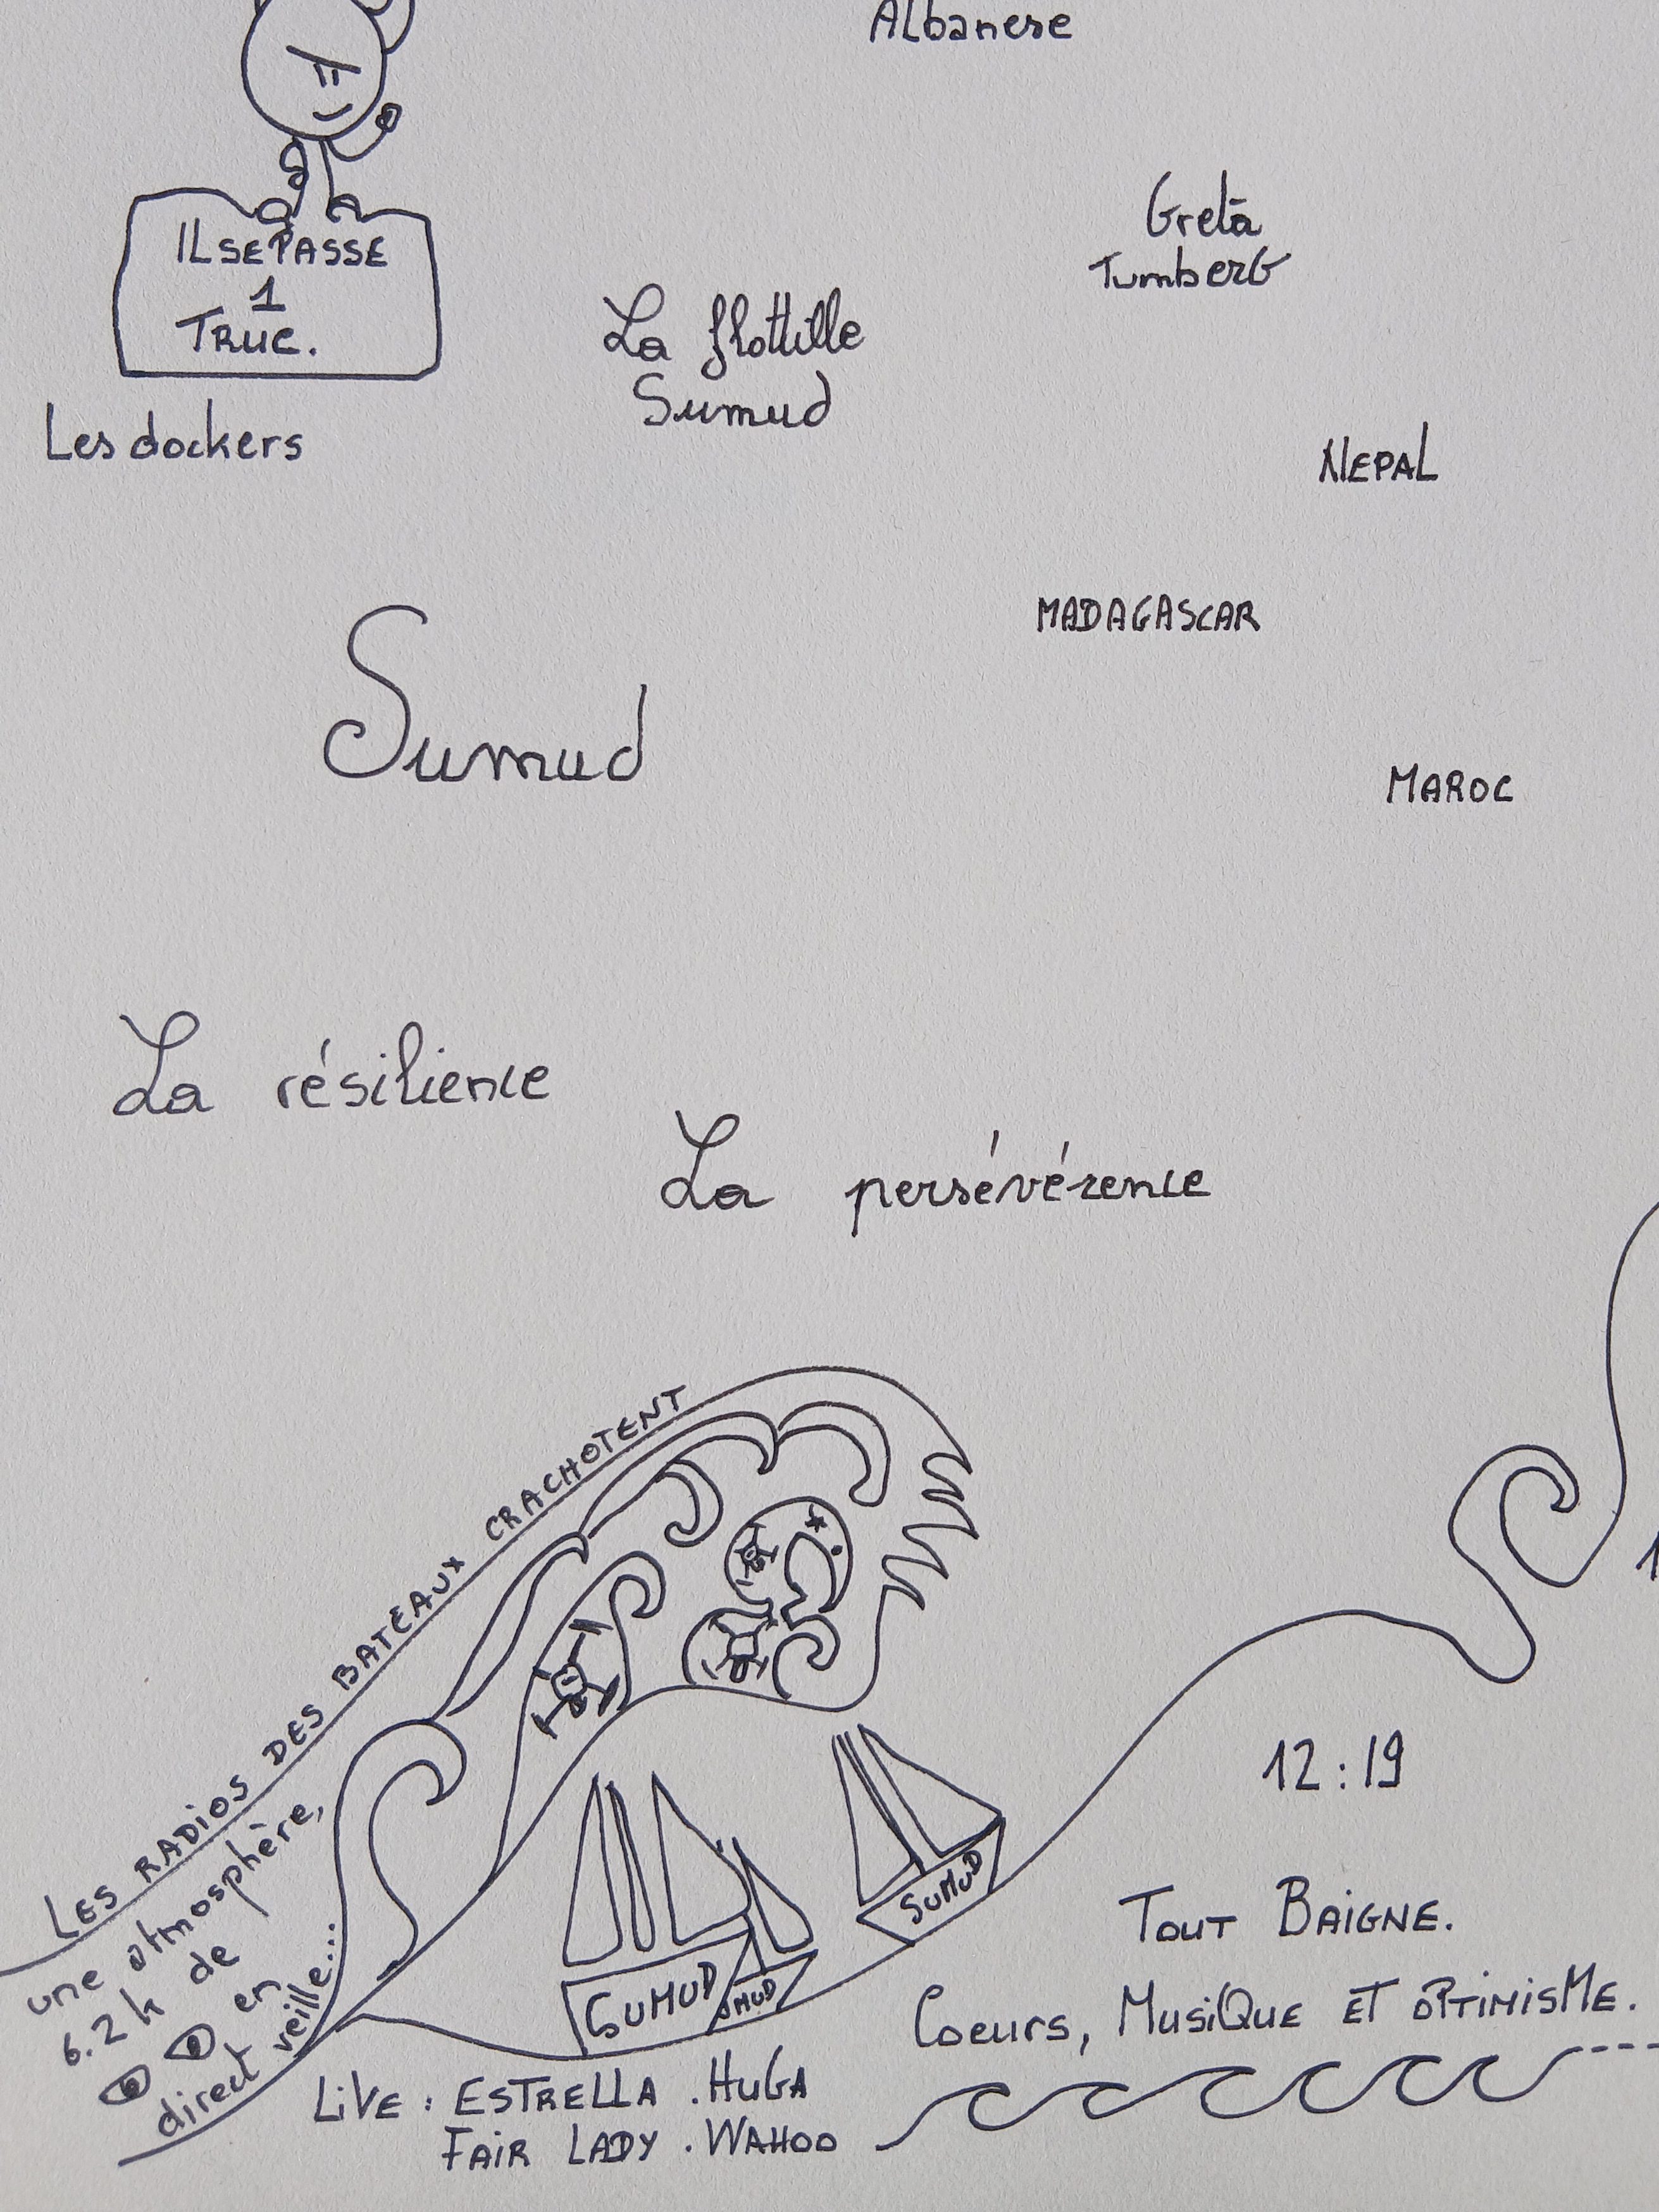 Albanese
ILSEPASSE
1
TRUC.
Les dockers
La flottille
Sumud
Greta
TumberG
NEPAL
MADAGASCAR
Sumud
MAROC
La résilience
La persévérence
LES RADIOS DES BATEAUX CRACHOTENT
une atmosphère,
6.2 h de
en
direct veille...
SUMUD
UMUD
SUMUD
12:19
TOUT BAIGNE.
Coeurs, MusiQue ET OPTIMISME.
LiVE : ESTRELLA . HUGA
FAIR LADY . WAHOO